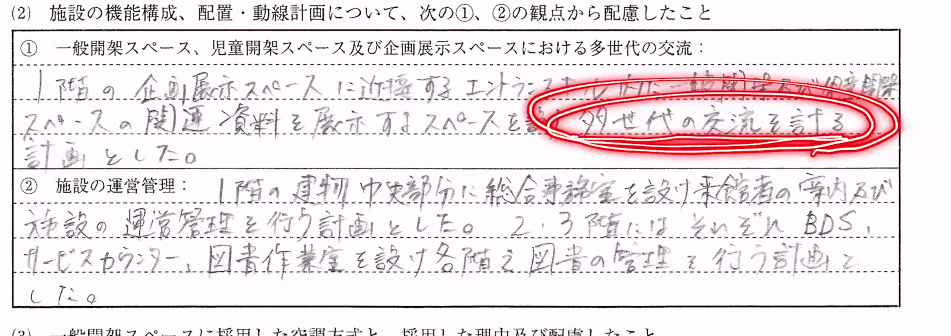 (2) 施設の機能構成、配置・動線計画について、次の①、②の観点から配慮したこと
① 一般開架スペース、児童開架スペース及び企画展示スペースにおける多世代の交流：
1階の企画展示スペースに近接するエントランスホール内に一般開架及び児童開架
スペースの関連資料を展示するスペースを設け多世代の交流を計る
計画とした。
② 施設の運営管理： 1階の建物中央部分に総合事務室を設け来館者の案内及び
施設の運営管理を行う計画とした。2、3階にはそれぞれBDS、
サービスカウンター、図書作業室を設け各階で図書の管理を行う計画と
した。
(3) 一般開架スペースに採用した空調方式と、採用した理由及び配慮したこと